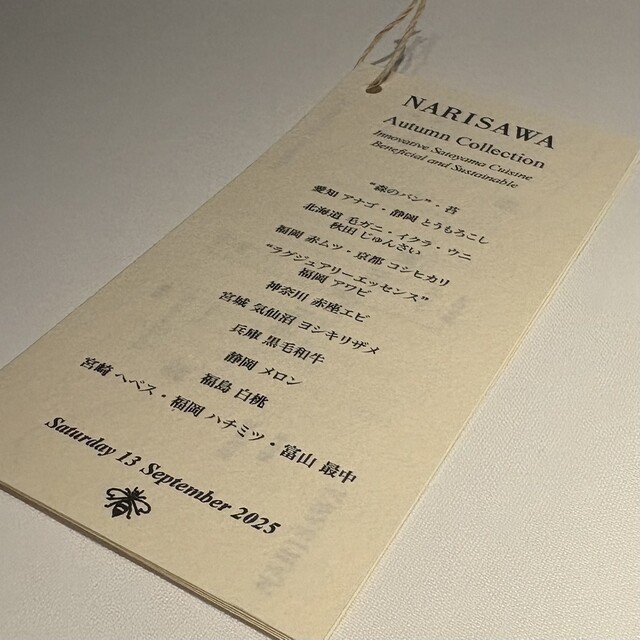 NARISAWA
Autumn Collection
Innovative Satoyama Cuisine
Beneficial and Sustainable
“森のパン”・苔
愛知 アナゴ・静岡 とうもろこし
北海道 毛ガニ・イクラ・ウニ
秋田 じゅんさい
福岡 赤ムツ・京都 コシヒカリ
“ラグジュアリーエッセンス”
福岡 アワビ
神奈川 赤座エビ
宮城 気仙沼 ヨシキリザメ
兵庫 黒毛和牛
静岡 メロン
福島 白桃
宮崎 へベス・福岡 ハチミツ・富山 最中
Saturday 13 September 2025